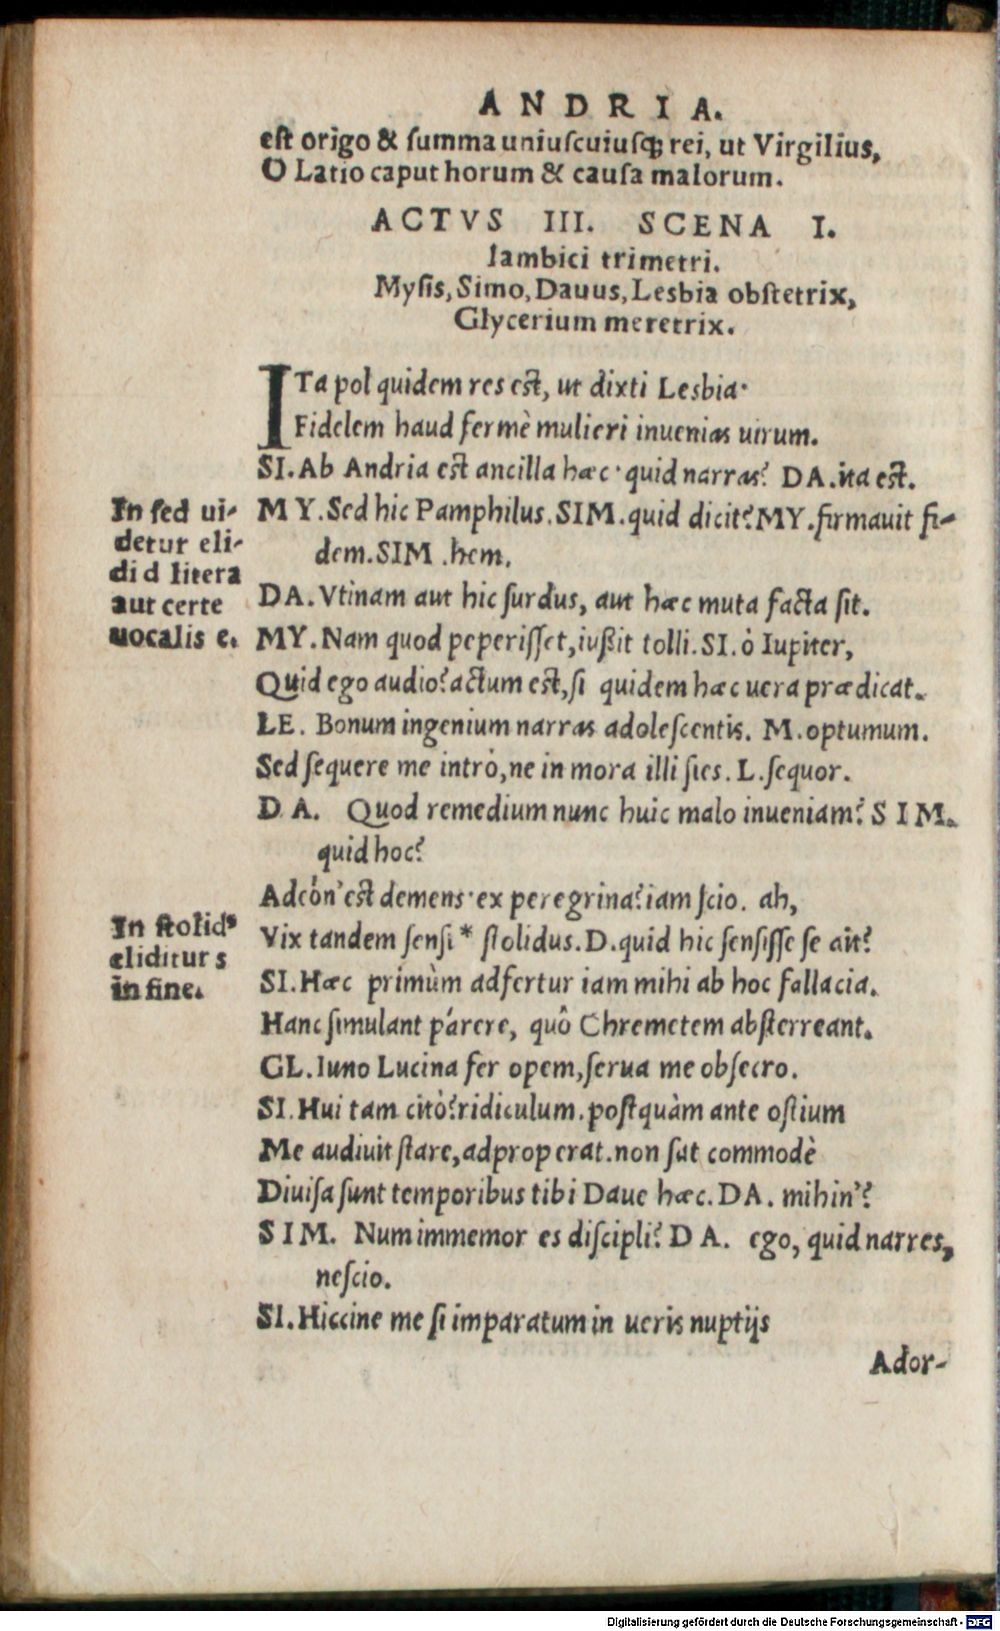 ANDRIA.
est origo & summa uniuscuiusq́ꝫ rei, ut Virgilius,
O Latio caput horum & causa malorum.
ACTVS III. SCENA I.
Iambici trimetri.
Mysis, Simo, Dauus, Lesbia obstetrix,
Glycerium meretrix.
ITa pol quidem res est, ut dixti Lesbia·
Fidelem haud fermè mulieri inuenias uirum.
SI. Ab Andria est ancilla hæc· quid narras? DA. ita est.
In sed ui-
detur eli-
di d litera
aut certe
uocalis e.
MY. Sed hic Pamphilus. SIM. quid dicit? MY. firmauit fi-
dem. SIM. hem.
DA. Vtinam aut hic surdus, aut hæc muta facta sit.
MY. Nam quod peperisset, iußit tolli. SI. ò Iupiter,
Quid ego audio? actum est, si quidem hæc uera prædicat.
LE. Bonum ingenium narras adolescentis. M. optumum.
Sed sequere me intrò, ne in mora illi sies. L. sequor.
DA. Quod remedium nunc huic malo inueniam? SIM.
quid hoc?
Adcón' est demens· ex peregrina? iam scio. ah,
In stolidˢ
eliditur s
in fine.
Vix tandem sensi * stolidus. D. quid hic sensisse se ait?
SI. Hæc primùm adfertur iam mihi ab hoc fallacia.
Hanc simulant párere, quô Chremetem absterreant.
GL. Iuno Lucina fer opem, serua me obsecro.
SI. Hui tam citò? ridiculum. postquàm ante ostium
Me audiuit stare, adproperat. non sat commodè
Diuisa sunt temporibus tibi Daue hæc. DA. mihin'?
SIM. Num immemor es discipli? DA. ego, quid narres,
nescio.
SI. Hiccine me si imparatum in ueris nuptijs
Ador-
Digitalisierung gefördert durch die Deutsche Forschungsgemeinschaft - DFG